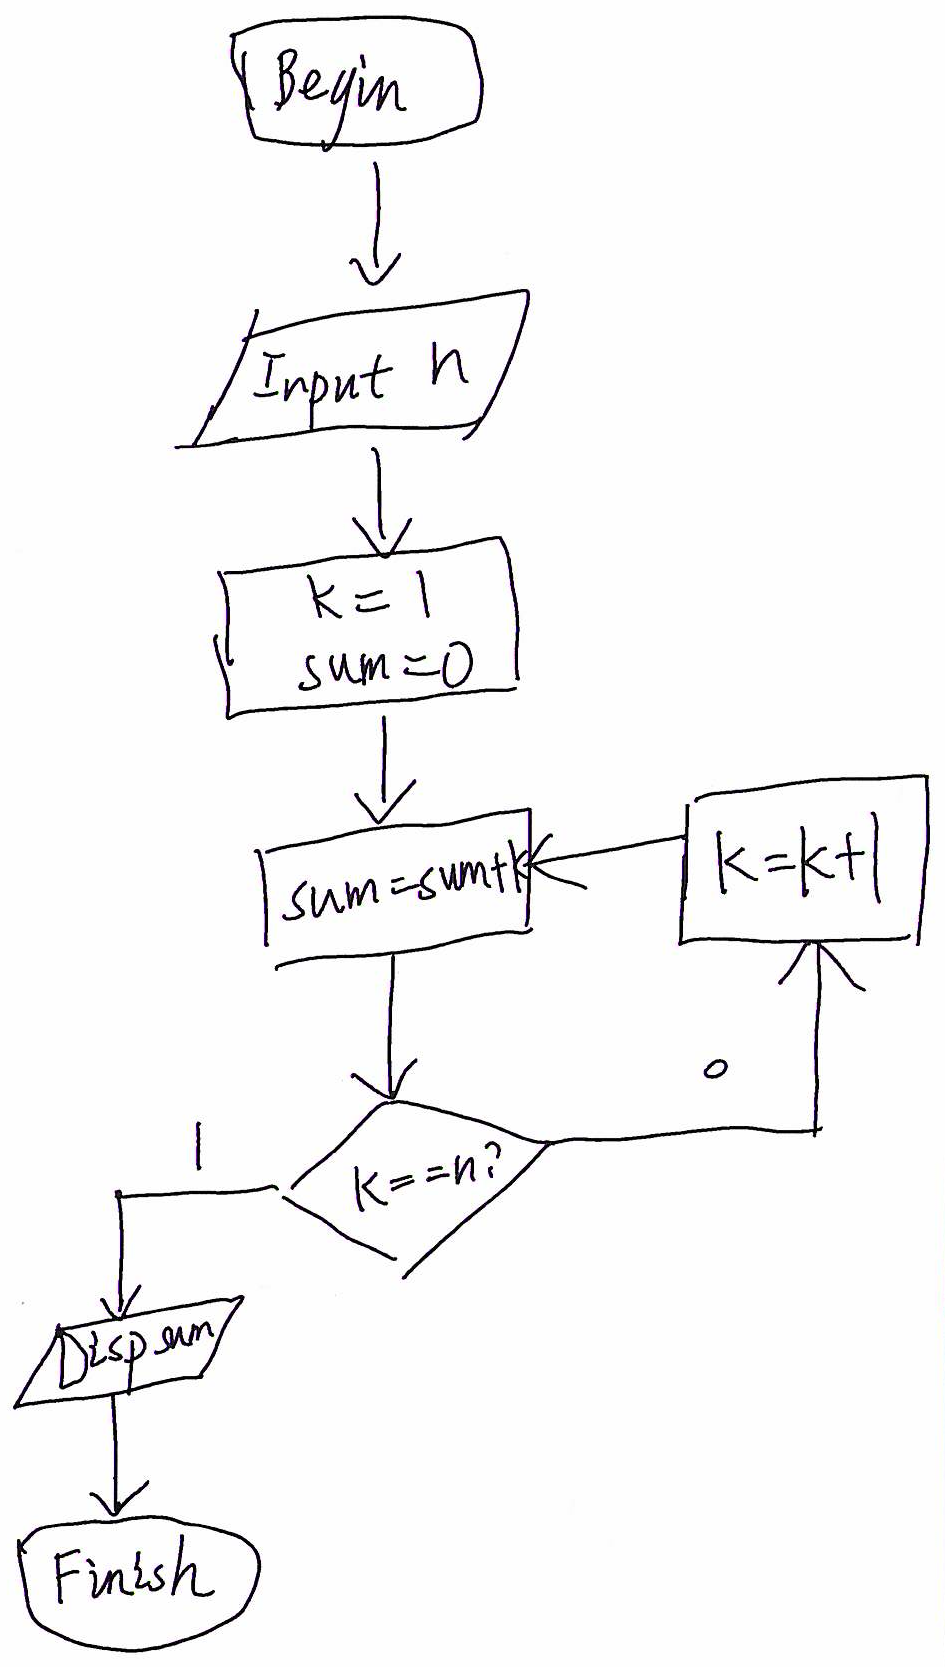 Begin
Input n
k = 1
sum = 0
sum = sum + k
k = k + 1
0
k == n?
1
Disp sum
Finish